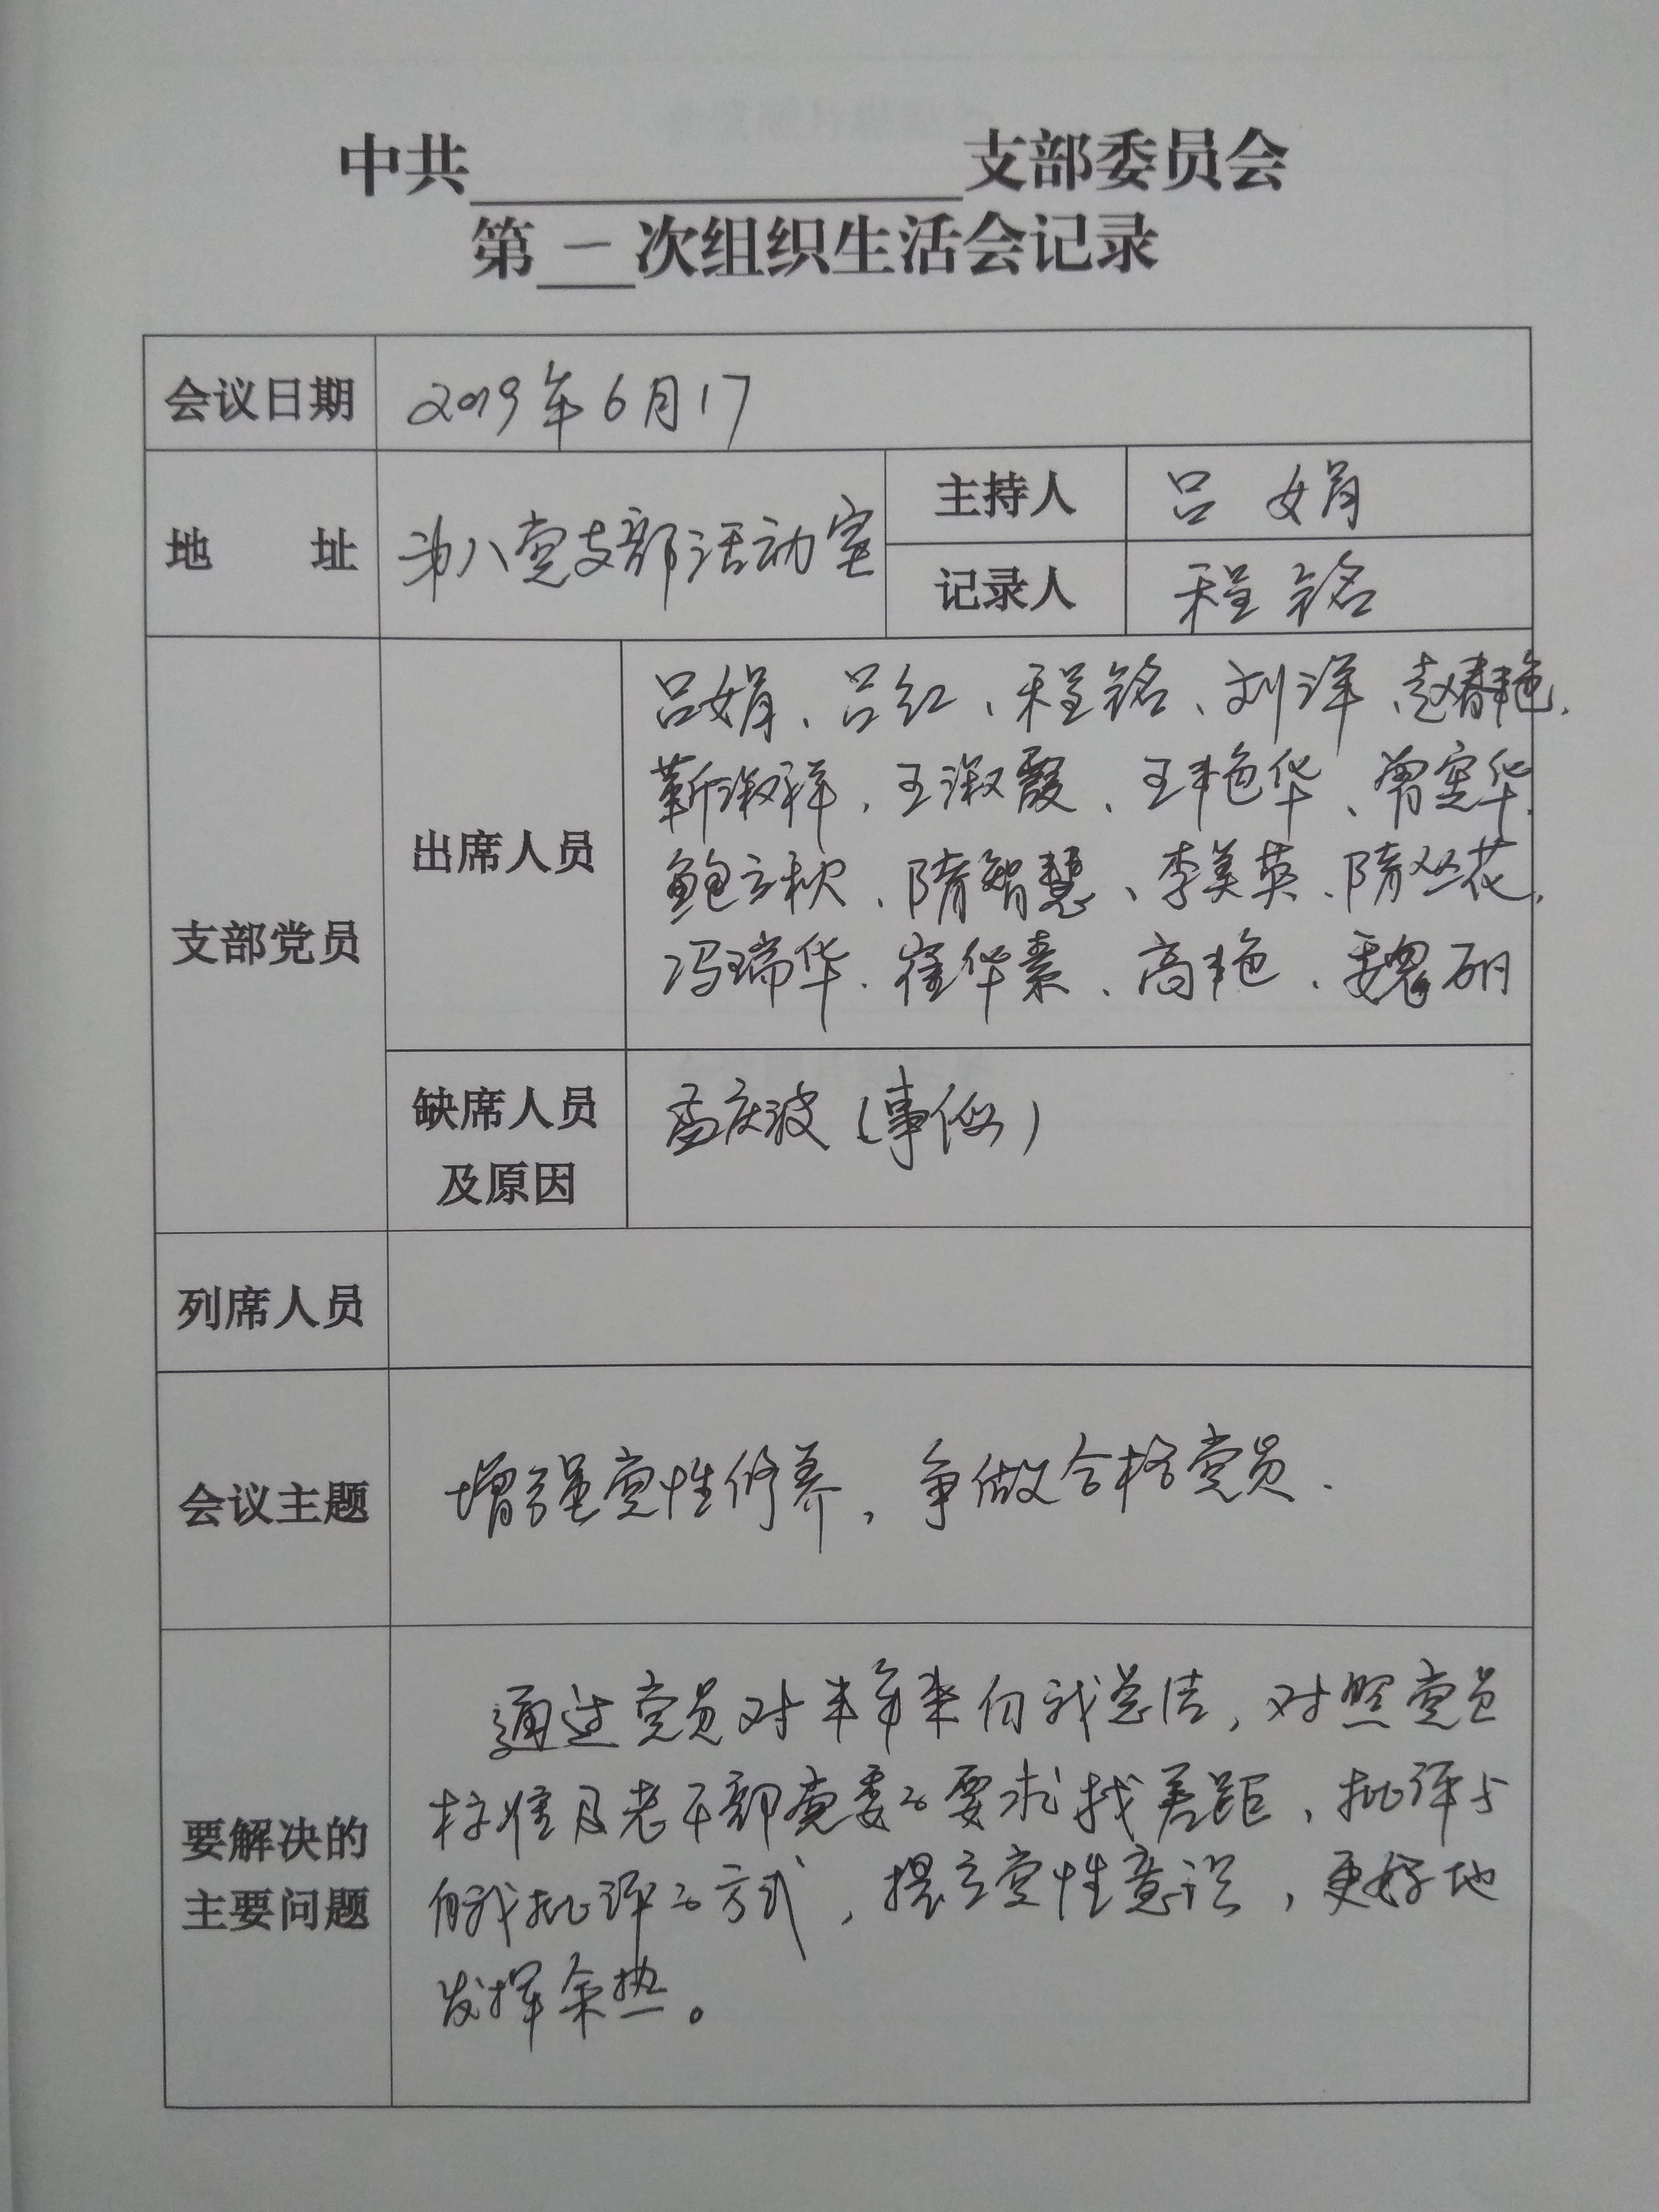 中共 支部委员会
第一次组织生活会记录
会议日期 2019年6月17
地 址 第八党支部活动室
主持人 吕娟
记录人 程铭
支部党员
出席人员
吕娟、吕红、程铭、刘洋、赵春艳、
靳淑祥、王淑霞、王艳华、曾宪华、
鲍立秋、隋智慧、李美英、隋丛花、
冯瑞华、崔华素、高艳、魏丽
缺席人员
及原因
孟庆波(事假)
列席人员
会议主题 增强党性修养,争做合格党员.
要解决的
主要问题
通过党员对半年来自我总结,对照党员
标准及老干部党委的要求找差距、批评与
自我批评的方式,提立党性意识,更好地
发挥余热。